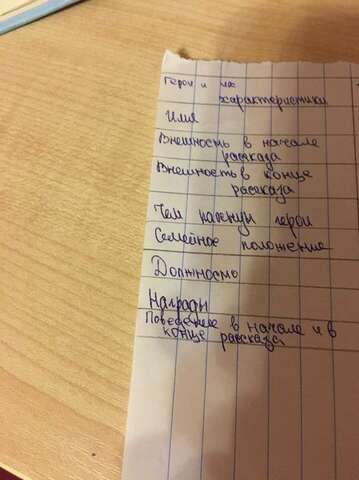 Герои и их
характеристики
Имя
Внешность в начале
рассказа
Внешность в конце
рассказа
Чем пахнут герои
Семейное положение
Должность
Награды
Поведение в начале и в
конце рассказа